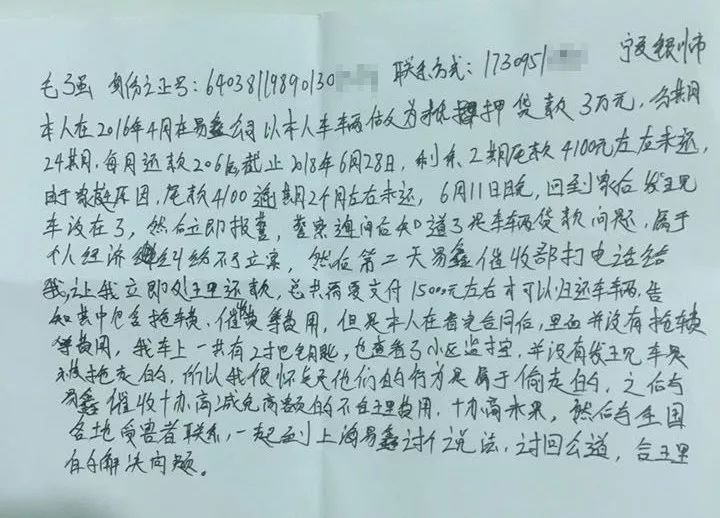 毛弓强 身份证号：64038119890130 联系方式：1730951 宁夏银川市
本人在2016年4月在易鑫公司以本人车车辆做为抵押贷款3万元，分期
24期，每月还款206 截止2018年6月28日，剩余2期尾款4100元左右未还，
由于家庭原因，尾款4100逾期2个月左右未还，6月11日晚，回到家后发现
车没在了，然后立即报警，警察询问后知道了是车辆贷款问题，属于
个人经济纠纷不予立案，然后第二天易鑫催收部打电话给
我，让我立即处理还款，总共需要支付15000元左右才可以归还车辆，告
知其中包含拖车费、催收费等费用，但是本人在看完合同后，里面并没有拖车费
等费用，我车上一共有2把钥匙，也查看了小区监控，并没有发现车是
被拖走的，所以我很怀疑他们的行为是属于偷走的，之后与
易鑫催收协商减免高额的不合理费用，协商未果，然后与全国
各地受害者联系，一起到上海易鑫讨个说法，讨回公道，合理
的解决问题。